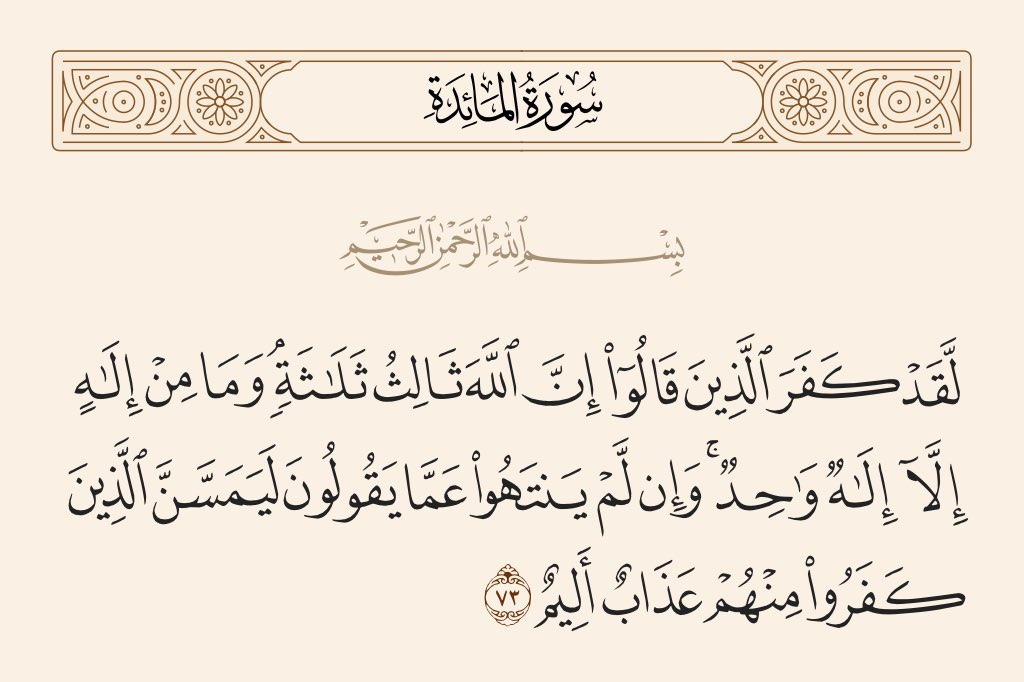 سُورَةُ المَائِدَةِ
بِسْمِ ٱللَّهِ ٱلرَّحْمَٰنِ ٱلرَّحِيمِ
لَّقَدْ كَفَرَ ٱلَّذِينَ قَالُوٓا۟ إِنَّ ٱللَّهَ ثَالِثُ ثَلَـٰثَةٍۢ وَمَا مِنْ إِلَـٰهٍ
إِلَّآ إِلَـٰهٌۭ وَٰحِدٌۭ ۚ وَإِن لَّمْ يَنتَهُوا۟ عَمَّا يَقُولُونَ لَيَمَسَّنَّ ٱلَّذِينَ
كَفَرُوا۟ مِنْهُمْ عَذَابٌ أَلِيمٌ ٧٣